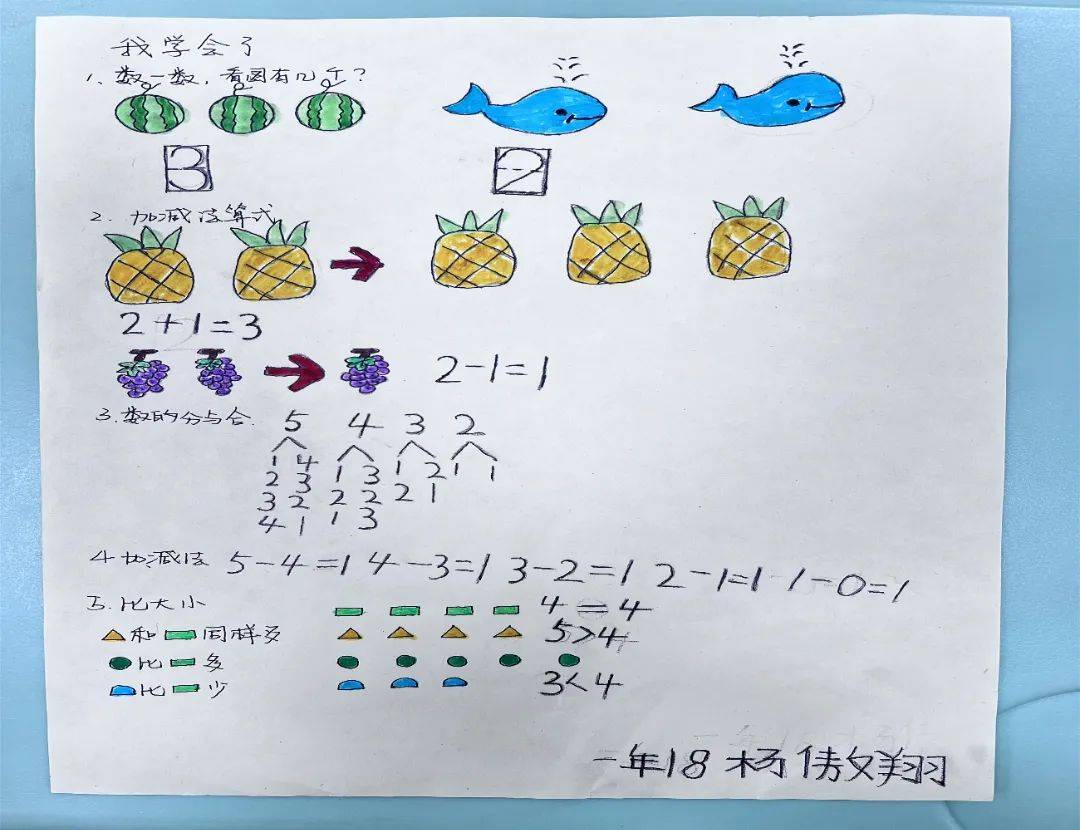 我学会了
1、数一数，看图有几个？
3 2
2. 加减法算式
2+1=3
2-1=1
3.数的分与合.
5 4 3 2
1 4 1 3 1 2 1 1
2 3 2 2 2 1
3 2 1 3
4 1
4 加减法 5-4=1 4-3=1 3-2=1 2-1=1 1-0=1
5.比大小
4=4
和 同样多
5>4
比 多
比 少
3<4
一年18 杨 翔